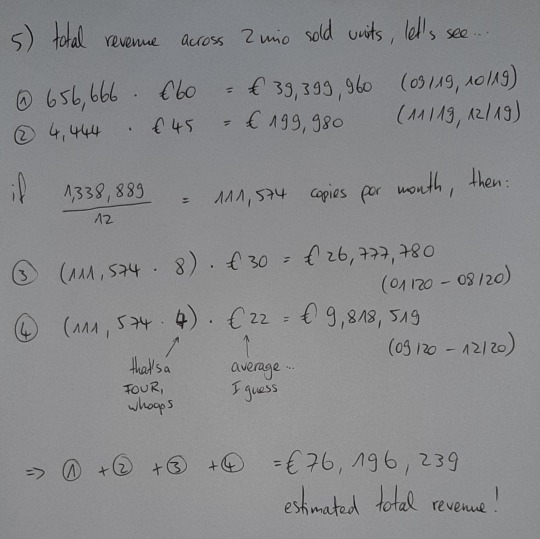 5) total revenue across 2 mio sold units, let's see...
① 656,666 · €60 = €39,399,960 (09/19, 10/19)
② 4,444 · €45 = €199,980 (11/19, 12/19)
if 1,338,889 / 12 = 111,574 copies per month, then:
③ (111,574 · 8) · €30 = €26,777,780
(01/20 - 08/20)
④ (111,574 · 4) · €22 = €9,818,519
(09/20 - 12/20)
that's a FOUR, whoops
average... I guess
=> ① + ② + ③ + ④ = €76,196,239
estimated total revenue!